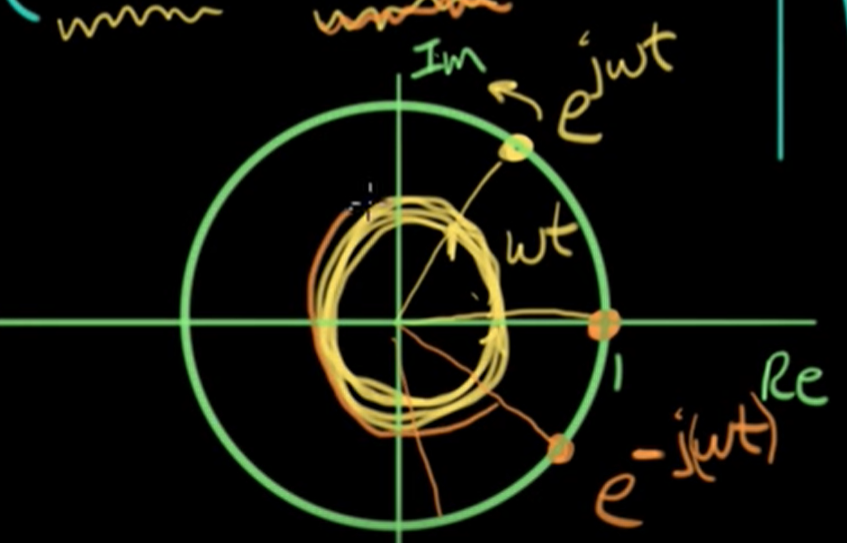 Im
e^{jωt}
ωt
1
Re
e^{-j(ωt)}